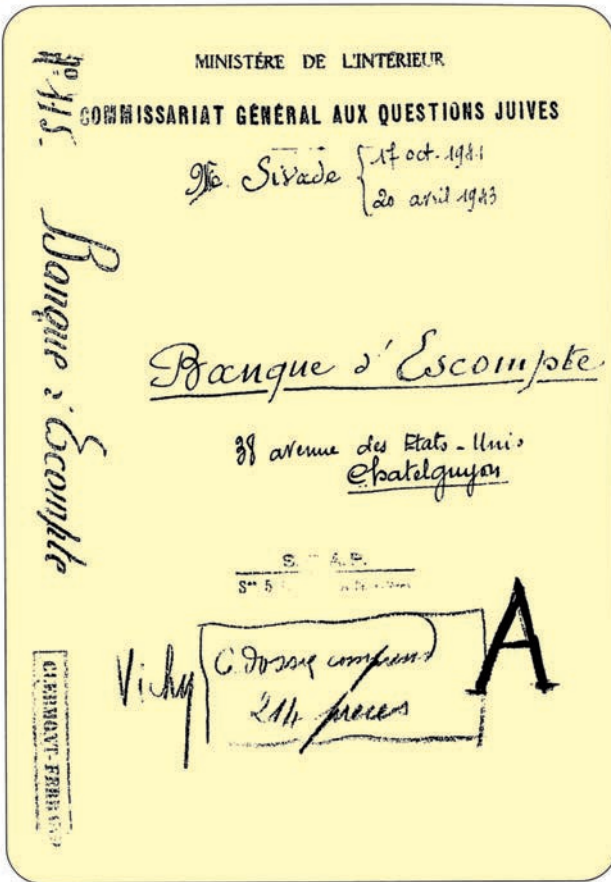 MINISTÉRE DE L'INTÉRIEUR
COMMISSARIAT GÉNÉRAL AUX QUESTIONS JUIVES
Sivade
17 oct. 1941
20 avril 1943
Banque d'Escompte
38 avenue des Etats-Unis
Chatelguyon
Vichy
C. Dossier comprend
214 pieces
A
N° 115.
Banque d'Escompte
CLERMONT-FERRAND